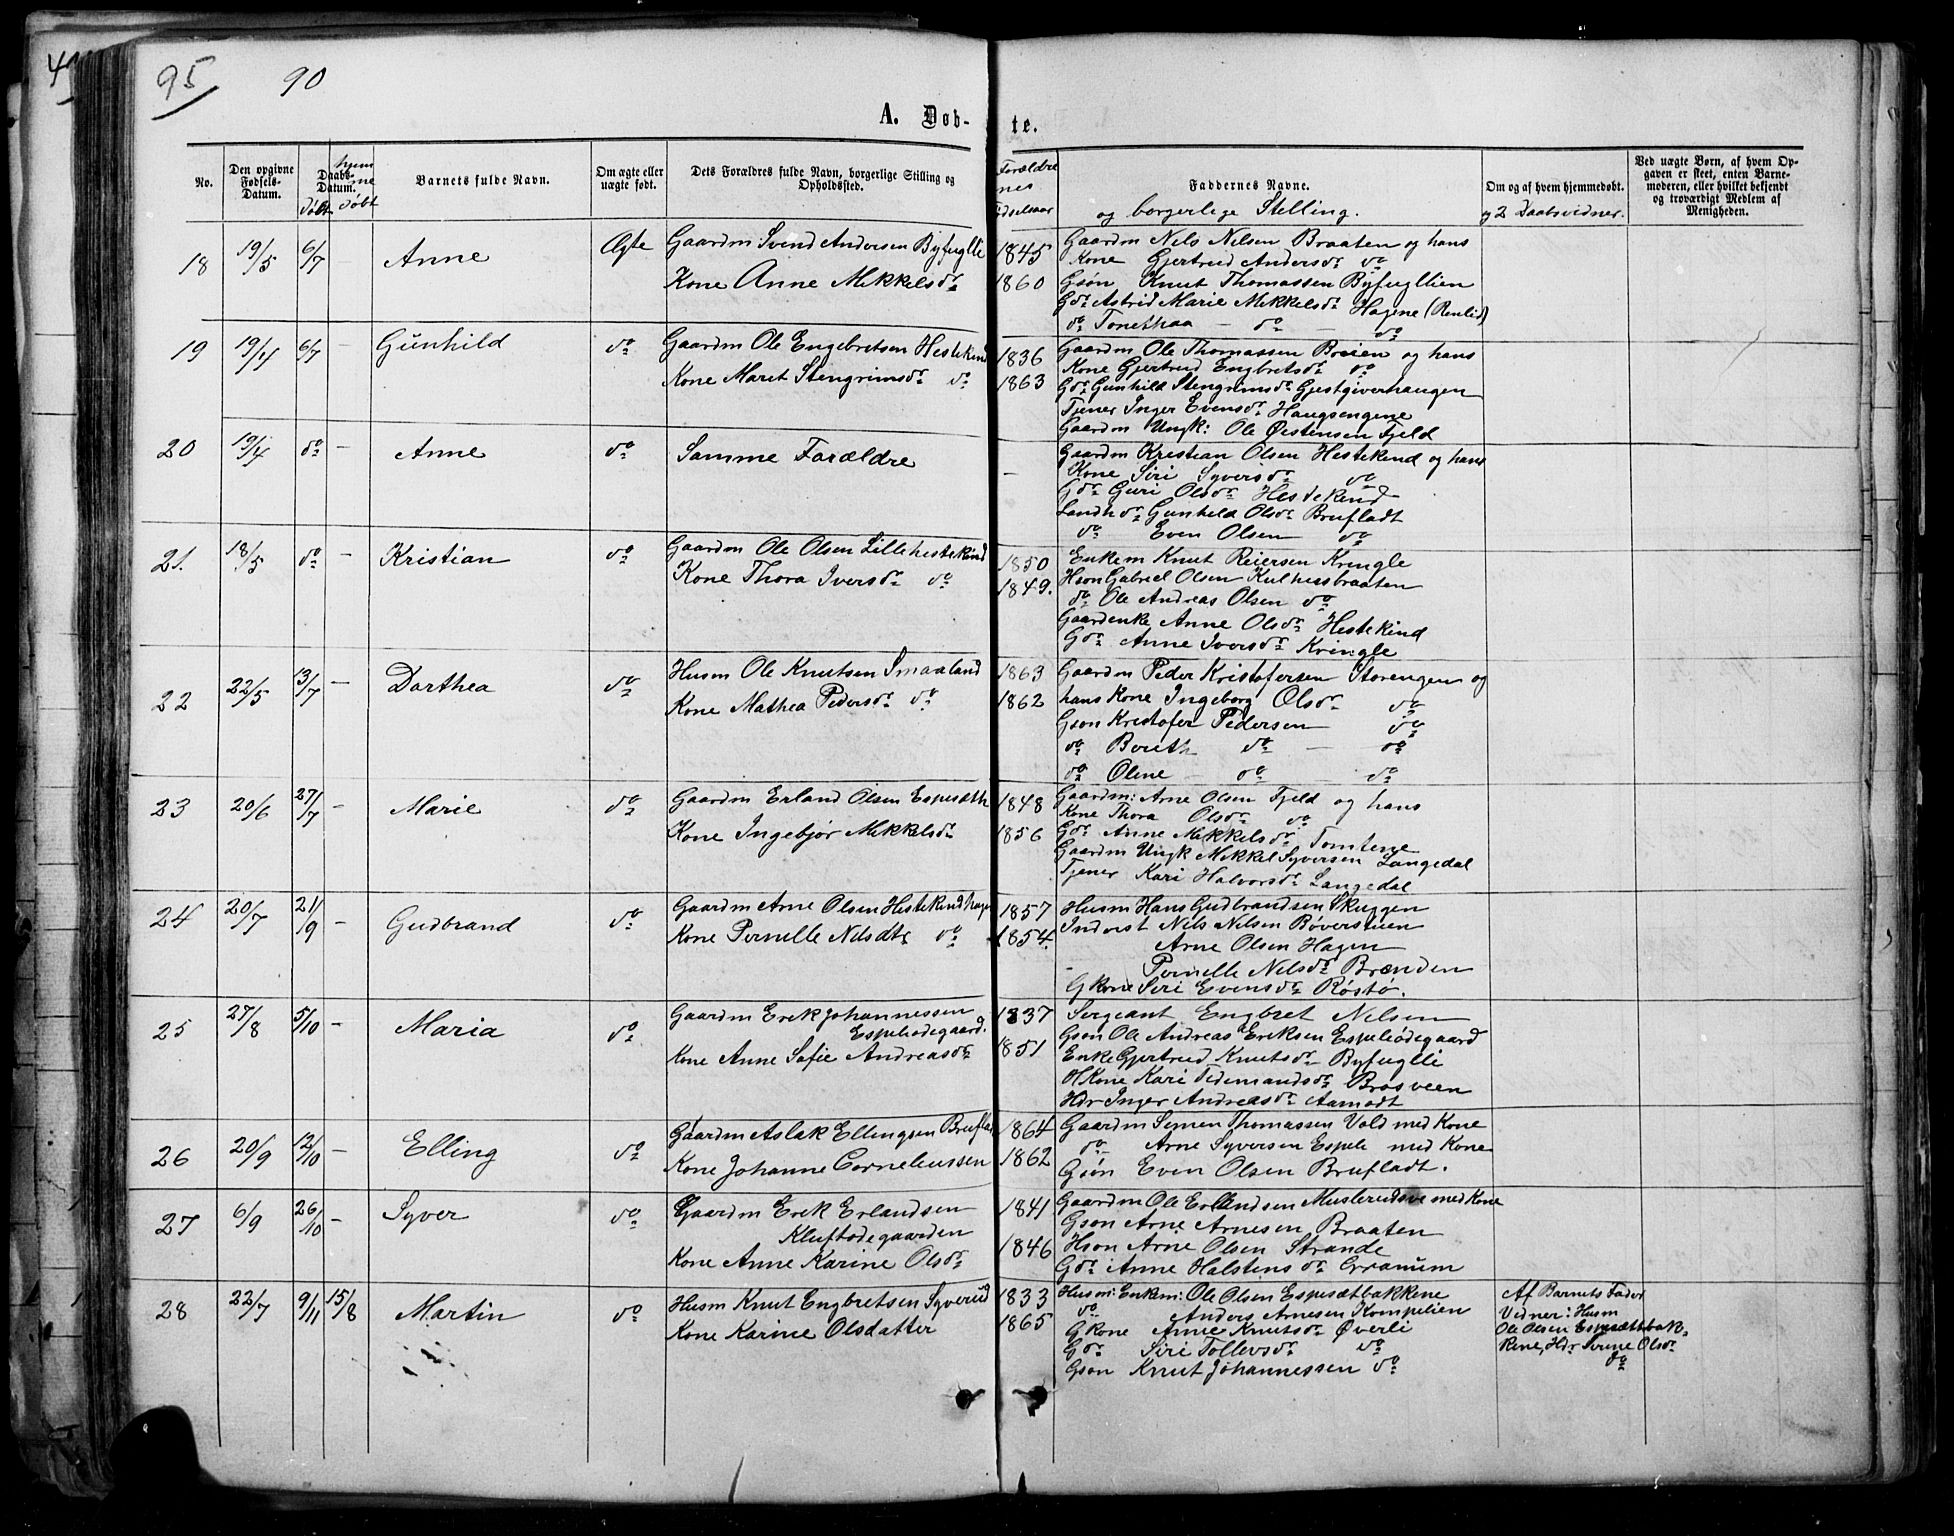 95 90
A. Døb-te.
No.
Den opgivne Fødsels-Datum.
Daabs-Datum.
døbt
hjemme døbt
Barnets fulde Navn.
Om ægte eller uægte født.
Dets Forældres fulde Navn, borgerlige Stilling og Opholdssted.
Forældre
nes
Fadderes Navne.
og borgerlige Stelling.
Om og af hvem hjemmedøbt.
og 2 Daabsvidner.
Ved uægte Børn, af hvem Opgaven er skeet, enten Barnemoderen, eller hvilket bekjendt og troværdigt Medlem af Menigheden.
18 19/5 6/7 — Anne Ægte
Gaardm: Svend Andersen Byfuglli
Kone Anne Mikkelsdr
1845
1860
Gaardm Nels Nilsen Braaten og hans
Kone Gjertrud Andersdr do
Gsøn Knut Thomassen Byfugllien
Gdr Astrid Marie Mikkelsdr Hagene (Renlid)
do Tonethaa — do — do
19 19/4 6/7 — Gunhild do
Gaardm Ole Engebretsen Hestekind
Kone Marit Stengrimsdr do
1836
1863
Gaardm Ole Thomassen Breien og hans
Kone Gjertrud Engbretsdr do
Gdr Gunhild Stengrimsdr Gjestgiverhaugen
Tjener Inger Evensdr Haugsengene
Gaardm Ungk: Ole Øistensen Fjeld
20 19/4 do — Anne do
Samme Forældre
—
Gaardm Kristian Olsen Hestekind og hans
Kone Siri Syversdr do
Gdr Guri Olsdr Hestekind
Landhdr Gunhild Olsdr Brufladt
do Even Olsen do
21. 18/5 do — Kristian do
Gaardm Ole Olsen Lillehestekind
Kone Thora Iversdr do
1850
1849.
Enkem Knut Reiersen Kringle
Hsøn Gabriel Olsen Kulhusbraaten
do Ole Andreas Olsen do
Gaardenke Anne Olsdr Hestekind
Gdr Anne Iversdr Kringle
22 22/5 13/7 — Dorthea do
Husm Ole Knutsen Smaaland
Kone Mathea Pedersdr do
1863
1862
Gaardm Peder Kristofersen Storengen og
hans Kone Ingeborg Olsdr do
Gsøn Kristofer Pedersen do
do Berith do — do
do Oline — do — do
23 20/6 27/7 — Marie do
Gaardm Erland Olsen Espesæth
Kone Ingebjør Mikkelsdr
1848
1856
Gaardm: Arne Olsen Fjeld og hans
Kone Thora Olsdr do
Gdr Anne Mikkelsdr Tomtene
Gaardm Ungk Mikkel Syversen Langedal
Tjener Kari Halvorsdr Langedal
24 20/7 21/9 — Gudbrand do
Gaardm Arne Olsen Hestekindhagen
Kone Pernille Nilsdtr do
1857
1854.
Husm Hans Gudbrandsen Skuggen
Inderst Nels Nilsen Bøverstuen
Arne Olsen Hagen
Pernille Nelsdr Brænden
Gkone Siri Evensdr Røstø.
25 27/8 5/10 — Maria do
Gaardm Erik Johannessen
Espeliødegaard.
Kone Anne Sofie Andreasdr
1837
1851
Sergeant Engbret Nilsen
Gsøn Ole Andreas Eriksen Espeliødegaard
Enke Gjertrud Knutsdr Byfuglli
HKone Kari Tidemandsdr Brosveen
Hdr Inger Andreasdr Aamodt
26 20/9 12/10 — Elling do
Gaardm Aslak Ellingsen Brufla
Kone Johanne Corneliussen
1864
1862
Gaardm Simen Thomassen Vold med Kone
do— Arne Syversen Espeli med Kone
Gsøn Even Olsen Brufladt.
27 6/9 26/10 — Syver do
Gaardm Erik Erlandsen
Kluftødegaarden
Kone Anne Karine Olsdr
1841
1846
Gaardm Ole Erlandsen Muslerudsve med Kone
Gsøn Arne Arnesen Braaten
Hsøn Arne Olsen Strande
Gdr Anne Halstensdr Grranum
28 22/7 9/11 15/8 Martin do
Husm Knut Engbretsen Syverud
Kone Karine Olsdatter
1833
1865
Husm: Enkem: Ole Olsen Espesætbakkene
do Anders Arnesen Kompelien
Gkone Anne Knutsdr Øverli
Gdr Siri Tollevsdr do
Gsøn Knut Johannessen do
Af Barnets Fader
Vidner: Husm
Ole Olsen Espesætbak-
kene, Hdr Sirine Olsdr
do